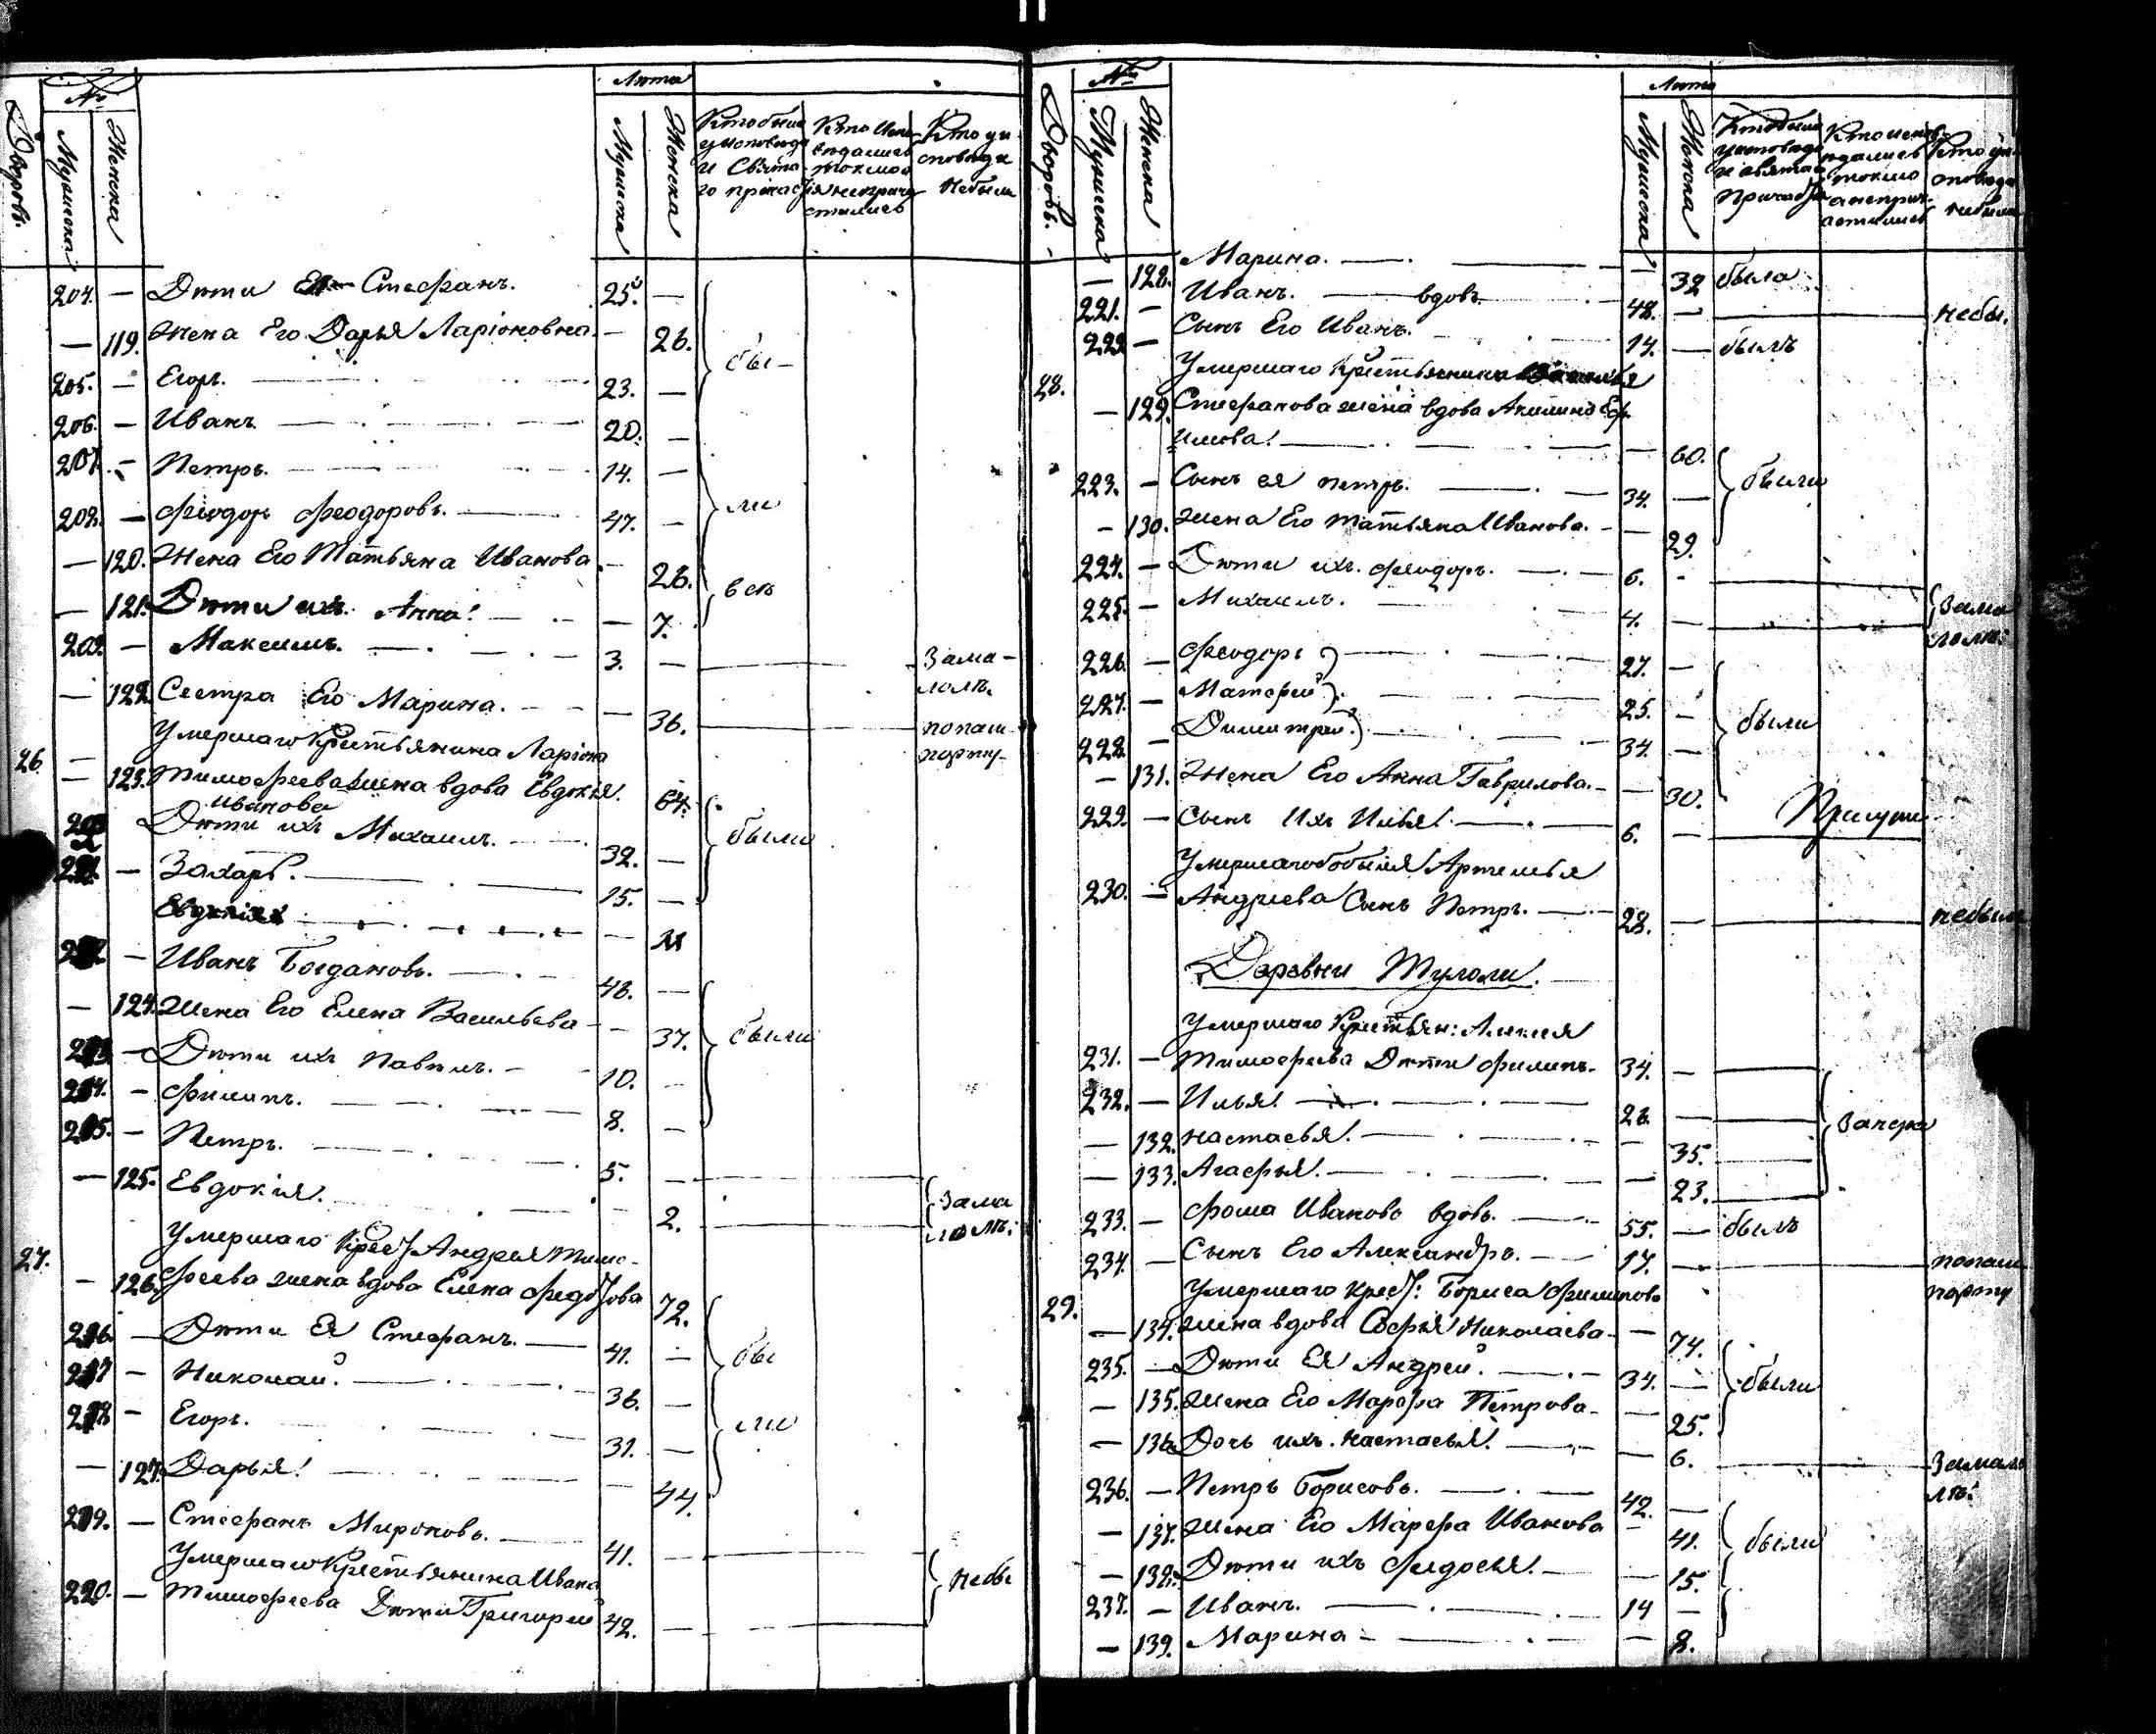 №
Лѣта
Дворовъ.
Мужеска
Женска
Мужеска
Женска
Кто были
у исповѣди
и Свята-
го причас
Кто испо-
вѣдались
токмо а
не прича-
стились
Кто у и-
сповѣди
не были
204. — Дѣти Ея Стефанъ. 25. —
— 119. Жена Его Дарья Ларіоновна. — 26.
205. — Егоръ. 23. — бы-
206. — Иванъ 20. —
207. — Петръ. 14. —
208. — Феодоръ Феодоровъ. 47. — ли
— 120. Жена Его Татьяна Иванова — 26.
— 121. Дѣти ихъ Анна. — 7. всѣ
209. — Максимъ. 3. — за ма-
лолѣ.
— 122. Сестра Его Марина. — 36. по паш-
порту
26. Умершаго Крестьянина Ларіона
— 123. Тимофеева жена вдова Евдокія. — 64.
Иванова
Дѣти ихъ Михаилъ. 32. — были
— Захаръ. 15. —
— Иванъ Богдановъ. 48. —
— 124. Жена Его Елена Васильева — 37. были
— Дѣти ихъ Павелъ. 10. —
214. — Филипъ. 8. —
215. — Петръ. 5. —
— 125. Евдокія. — 2. за ма
лолѣ.
27. Умершаго Крест Андрея Тимо-
— 126. феева жена вдова Елена Федотова 72.
216. — Дѣти Ея Стефанъ. 41. — бы
217 — Николай. 36. —
218 — Егоръ. 31. — ли
— 127. Дарья. — 44.
219. — Стефанъ Мироновъ. 41. —
Умершаго Крестьянина Ивана
220. — Тимофеева Дѣти Григорей 42. — не бы
№
Лѣта
Дворовъ.
Мужеска
Женска
Мужеска
Женска
Кто были
у исповѣди
и святаго
Причас
Кто испо-
вѣдались
токмо
а не прич-
астились
Кто у и-
сповѣди
не были
— 128. Марина. — 32 была
221. — Иванъ. вдовъ 48. — не бы.
222 — Сынъ Его Иванъ. 14. — былъ
28. Умершаго Крестьянина Василья
— 129. Стефанова жена вдова Акилина Еф-
имова. — 60.
223. — Сынъ ея Петръ. 34. — были
— 130. Жена Его Татьяна Иванова. — 29.
224. — Дѣти ихъ Феодоръ. 6. —
225. — Михаилъ. 4. — за ма
лолѣ.
226. — Феодоръ 27. —
227. — Матфей 25. — были
228. — Димитрей. 34. —
— 131. Жена Его Анна Гаврилова. — 30.
229. — Сынъ Ихъ Илья. 6. —
Умершаго бобыля Артемья
230. — Андреева Сынъ Петръ. 28. — не былъ
Деревни Тулоли.
Умершаго Крестьян: Алексея
231. — Тимофеева Дѣти Филипъ. 34. —
232. — Илья. 26. —
— 132. Настасья. — 35.
— 133. Агафья. — 23.
233. — Фома Ивановъ вдовъ. 55. — былъ
234. — Сынъ Его Александръ. 17. — по паш
порту
29. Умершаго Крест: Бориса Филипова
— 134. жена вдова Софья Николаева — 74.
235. — Дѣти Ея Андрей. 34. — были
— 135. Жена Его Марфа Петрова — 25.
— 136 Дочь ихъ Настасья. — 6. за мало
лѣ.
236. — Петръ Борисовъ. 42. —
— 137. Жена Его Марфа Иванова — 41. были
— 138. Дѣти ихъ Федосья. — 15.
237. — Иванъ. 14 —
— 139. Марина — 8.